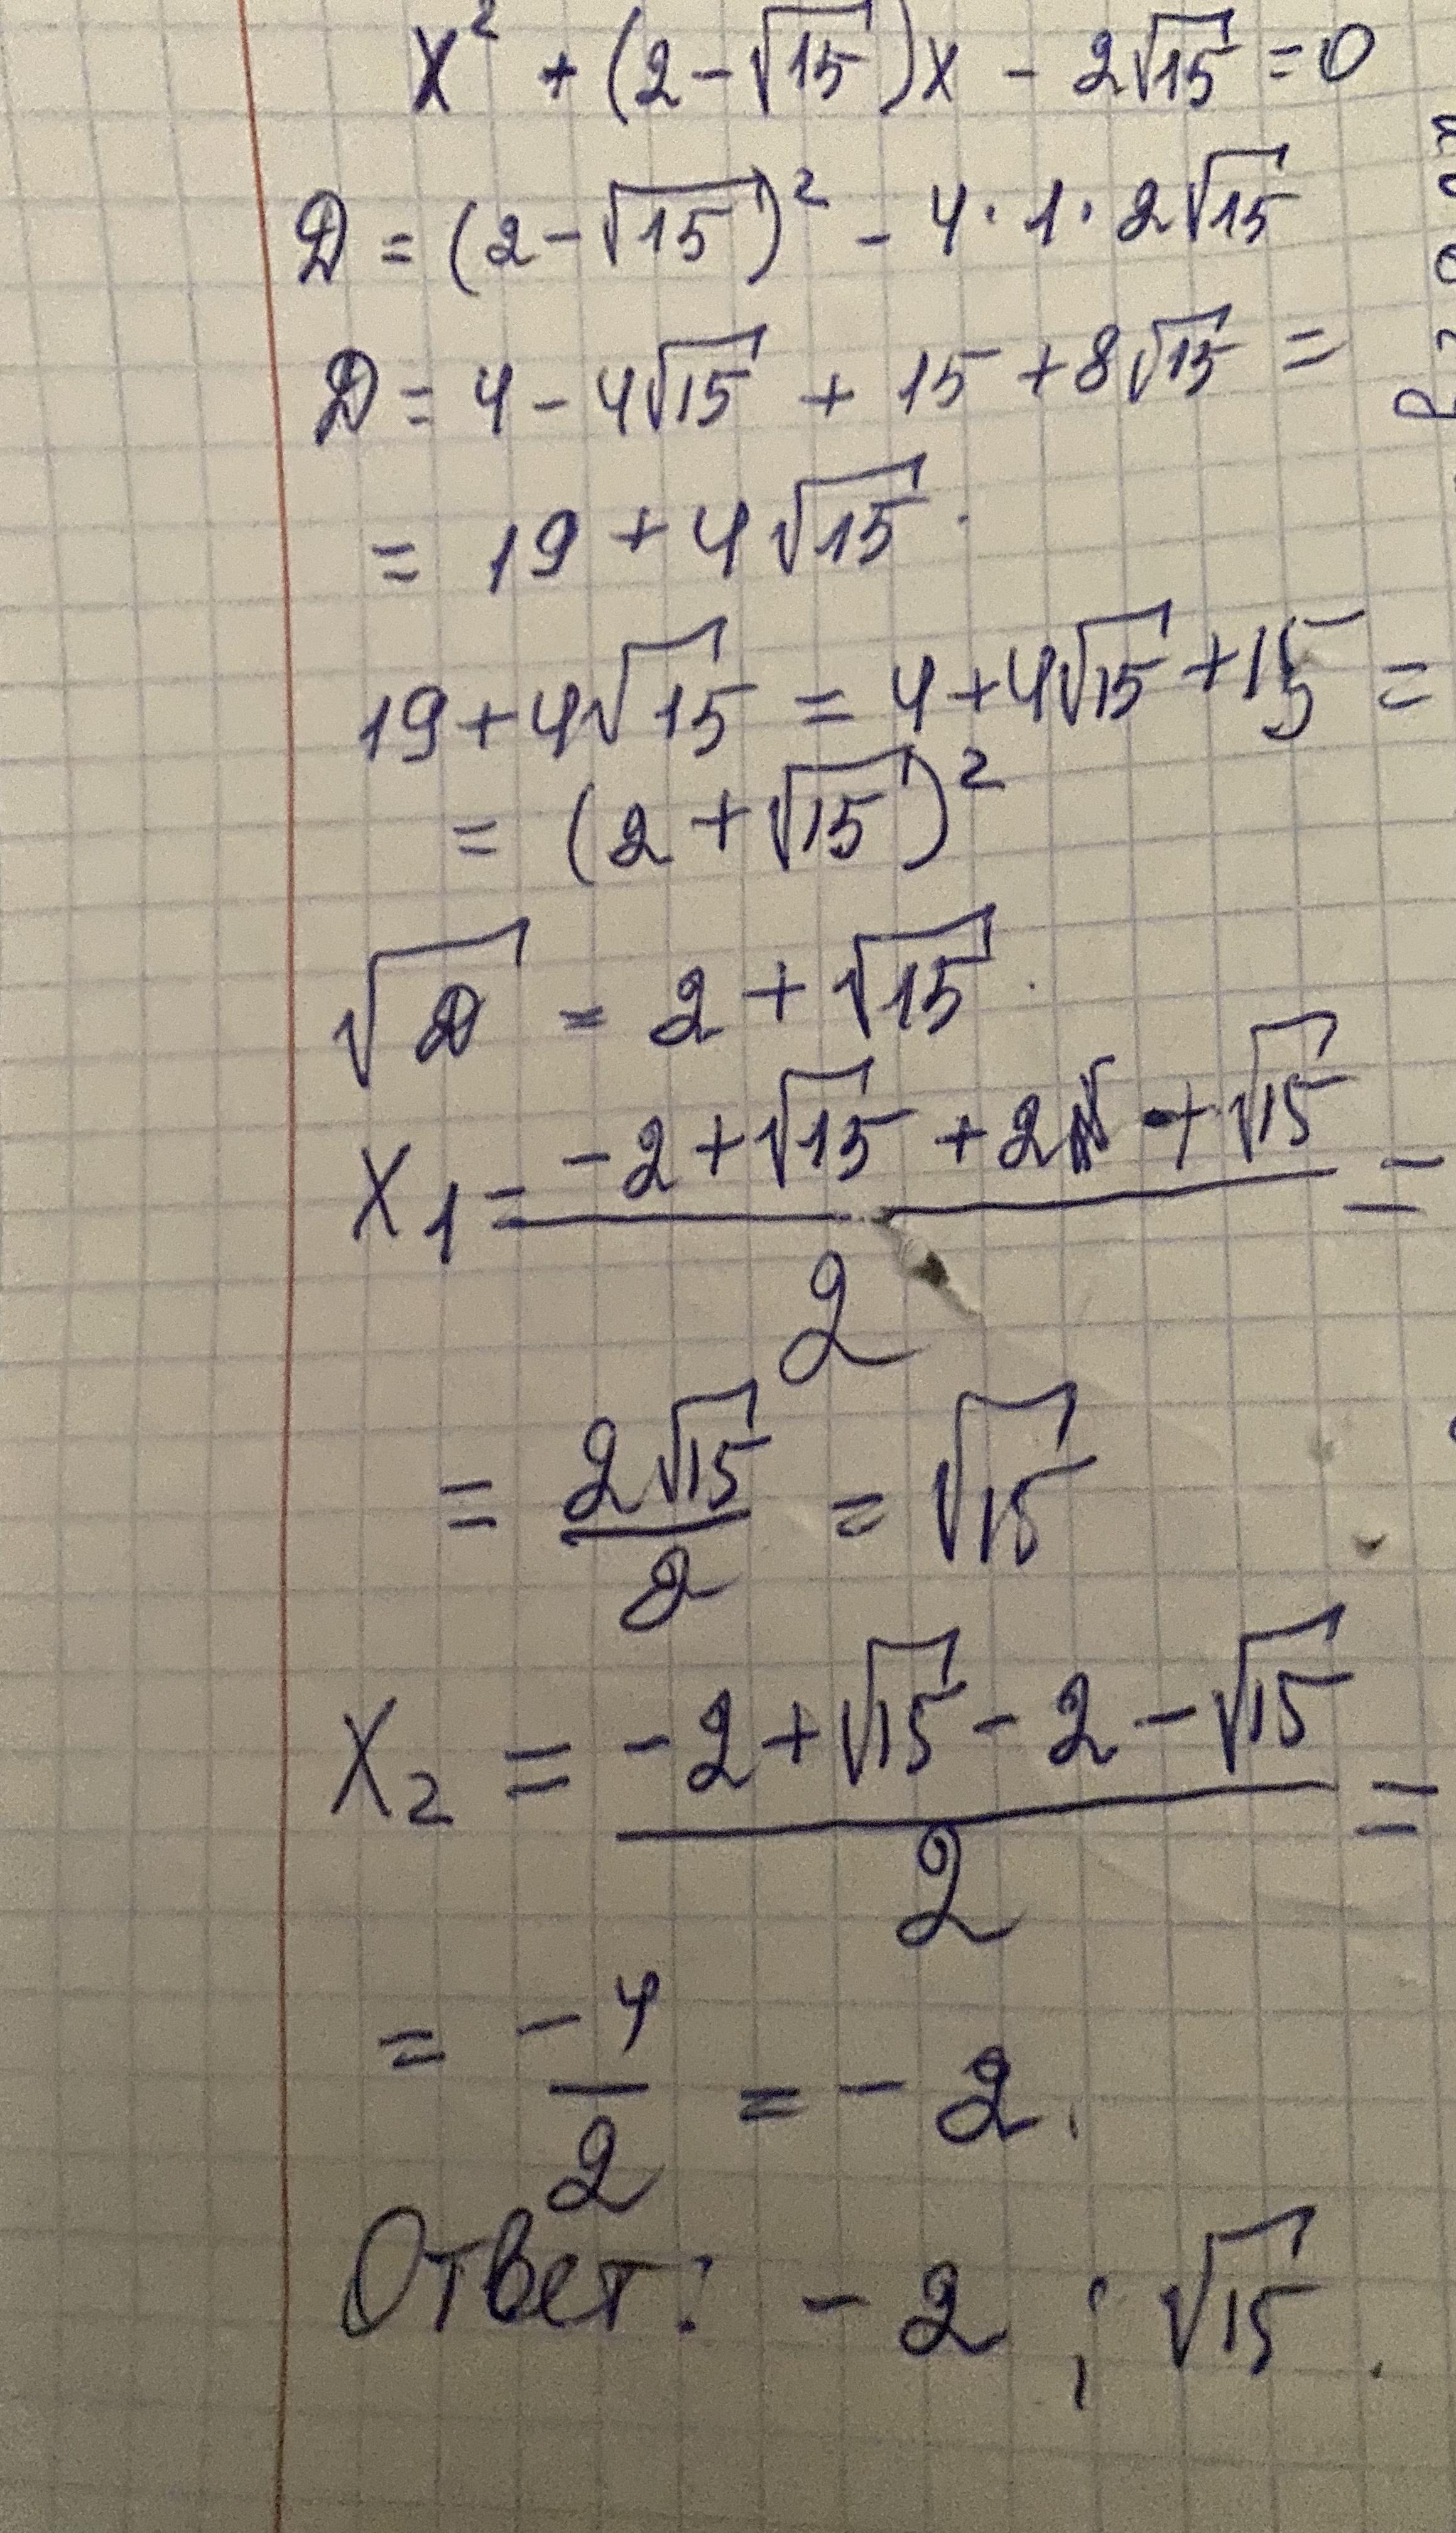 x² + (2 - √15)x - 2√15 = 0
D = (2 - √15)² - 4 · 1 · 2√15
D = 4 - 4√15 + 15 + 8√15 =
= 19 + 4√15.
19 + 4√15 = 4 + 4√15 + 15 =
= (2 + √15)²
√D = 2 + √15.
x₁ = (-2 + √15 + 2 + √15) / 2 =
= 2√15 / 2 = √15
x₂ = (-2 + √15 - 2 - √15) / 2 =
= -4 / 2 = -2.
Ответ: -2 ; √15.